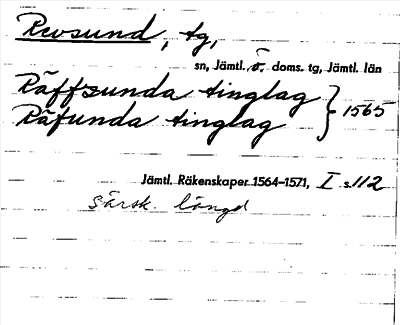 Revsund, tg,
sn, Jämtl. ö. doms. tg, Jämtl. län
Räffsunda tinglag } 1565
Räfunda tinglag
Jämtl. Räkenskaper 1564-1571, I s. 112
särsk. längd